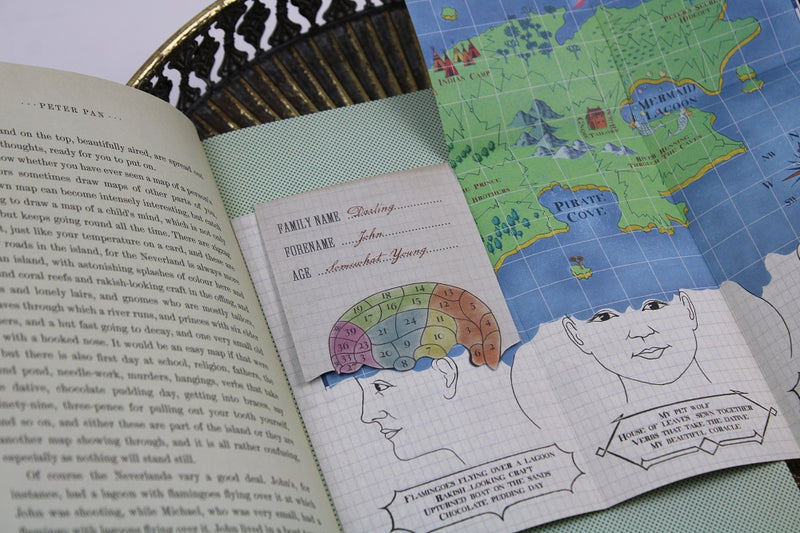 ··· PETER PAN ···
and on the top, beautifully aired, are spread out
thoughts, ready for you to put on.
know whether you have ever seen a map of a person's
ors sometimes draw maps of other parts of you,
own map can become intensely interesting, but catch
ng to draw a map of a child's mind, which is not only
but keeps going round all the time. There are zigzag
t, just like your temperature on a card, and these are
roads in the island, for the Neverland is always more
an island, with astonishing splashes of colour here and
and coral reefs and rakish-looking craft in the offing, and
s and lonely lairs, and gnomes who are mostly tailors,
aves through which a river runs, and princes with six elder
ers, and a hut fast going to decay, and one very small old
with a hooked nose. It would be an easy map if that were
but there is also first day at school, religion, fathers, the
und pond, needle-work, murders, hangings, verbs that take
e dative, chocolate pudding day, getting into braces, say
inety-nine, three-pence for pulling out your tooth yourself,
nd so on, and either these are part of the island or they are
another map showing through, and it is all rather confusing,
especially as nothing will stand still.
Of course the Neverlands vary a good deal. John's, for
instance, had a lagoon with flamingoes flying over it at which
John was shooting, while Michael, who was very small, had a
flamingo with lagoons flying over it. John lived in a boat
FAMILY NAME Darling
FORENAME John
AGE Somewhat Young
19
18
14
13
17
16
15
12
39
21
24
11
36
23
33
3
20
9
10
8
3
4
6
2
INDIAN CAMP
PETER'S SECRET
HIDEOUT
MERMAID
LAGOON
TAILORS
RIVER RUNNING
THROUGH THE CAVES
THE PRINCE
BROTHERS
PIRATE
COVE
N
W
FLAMINGOES FLYING OVER A LAGOON
RAKISH-LOOKING CRAFT
UPTURNED BOAT ON THE SANDS
CHOCOLATE PUDDING DAY
MY PET WOLF
HOUSE OF LEAVES, SEWN TOGETHER
VERBS THAT TAKE THE DATIVE
MY BEAUTIFUL CORACLE